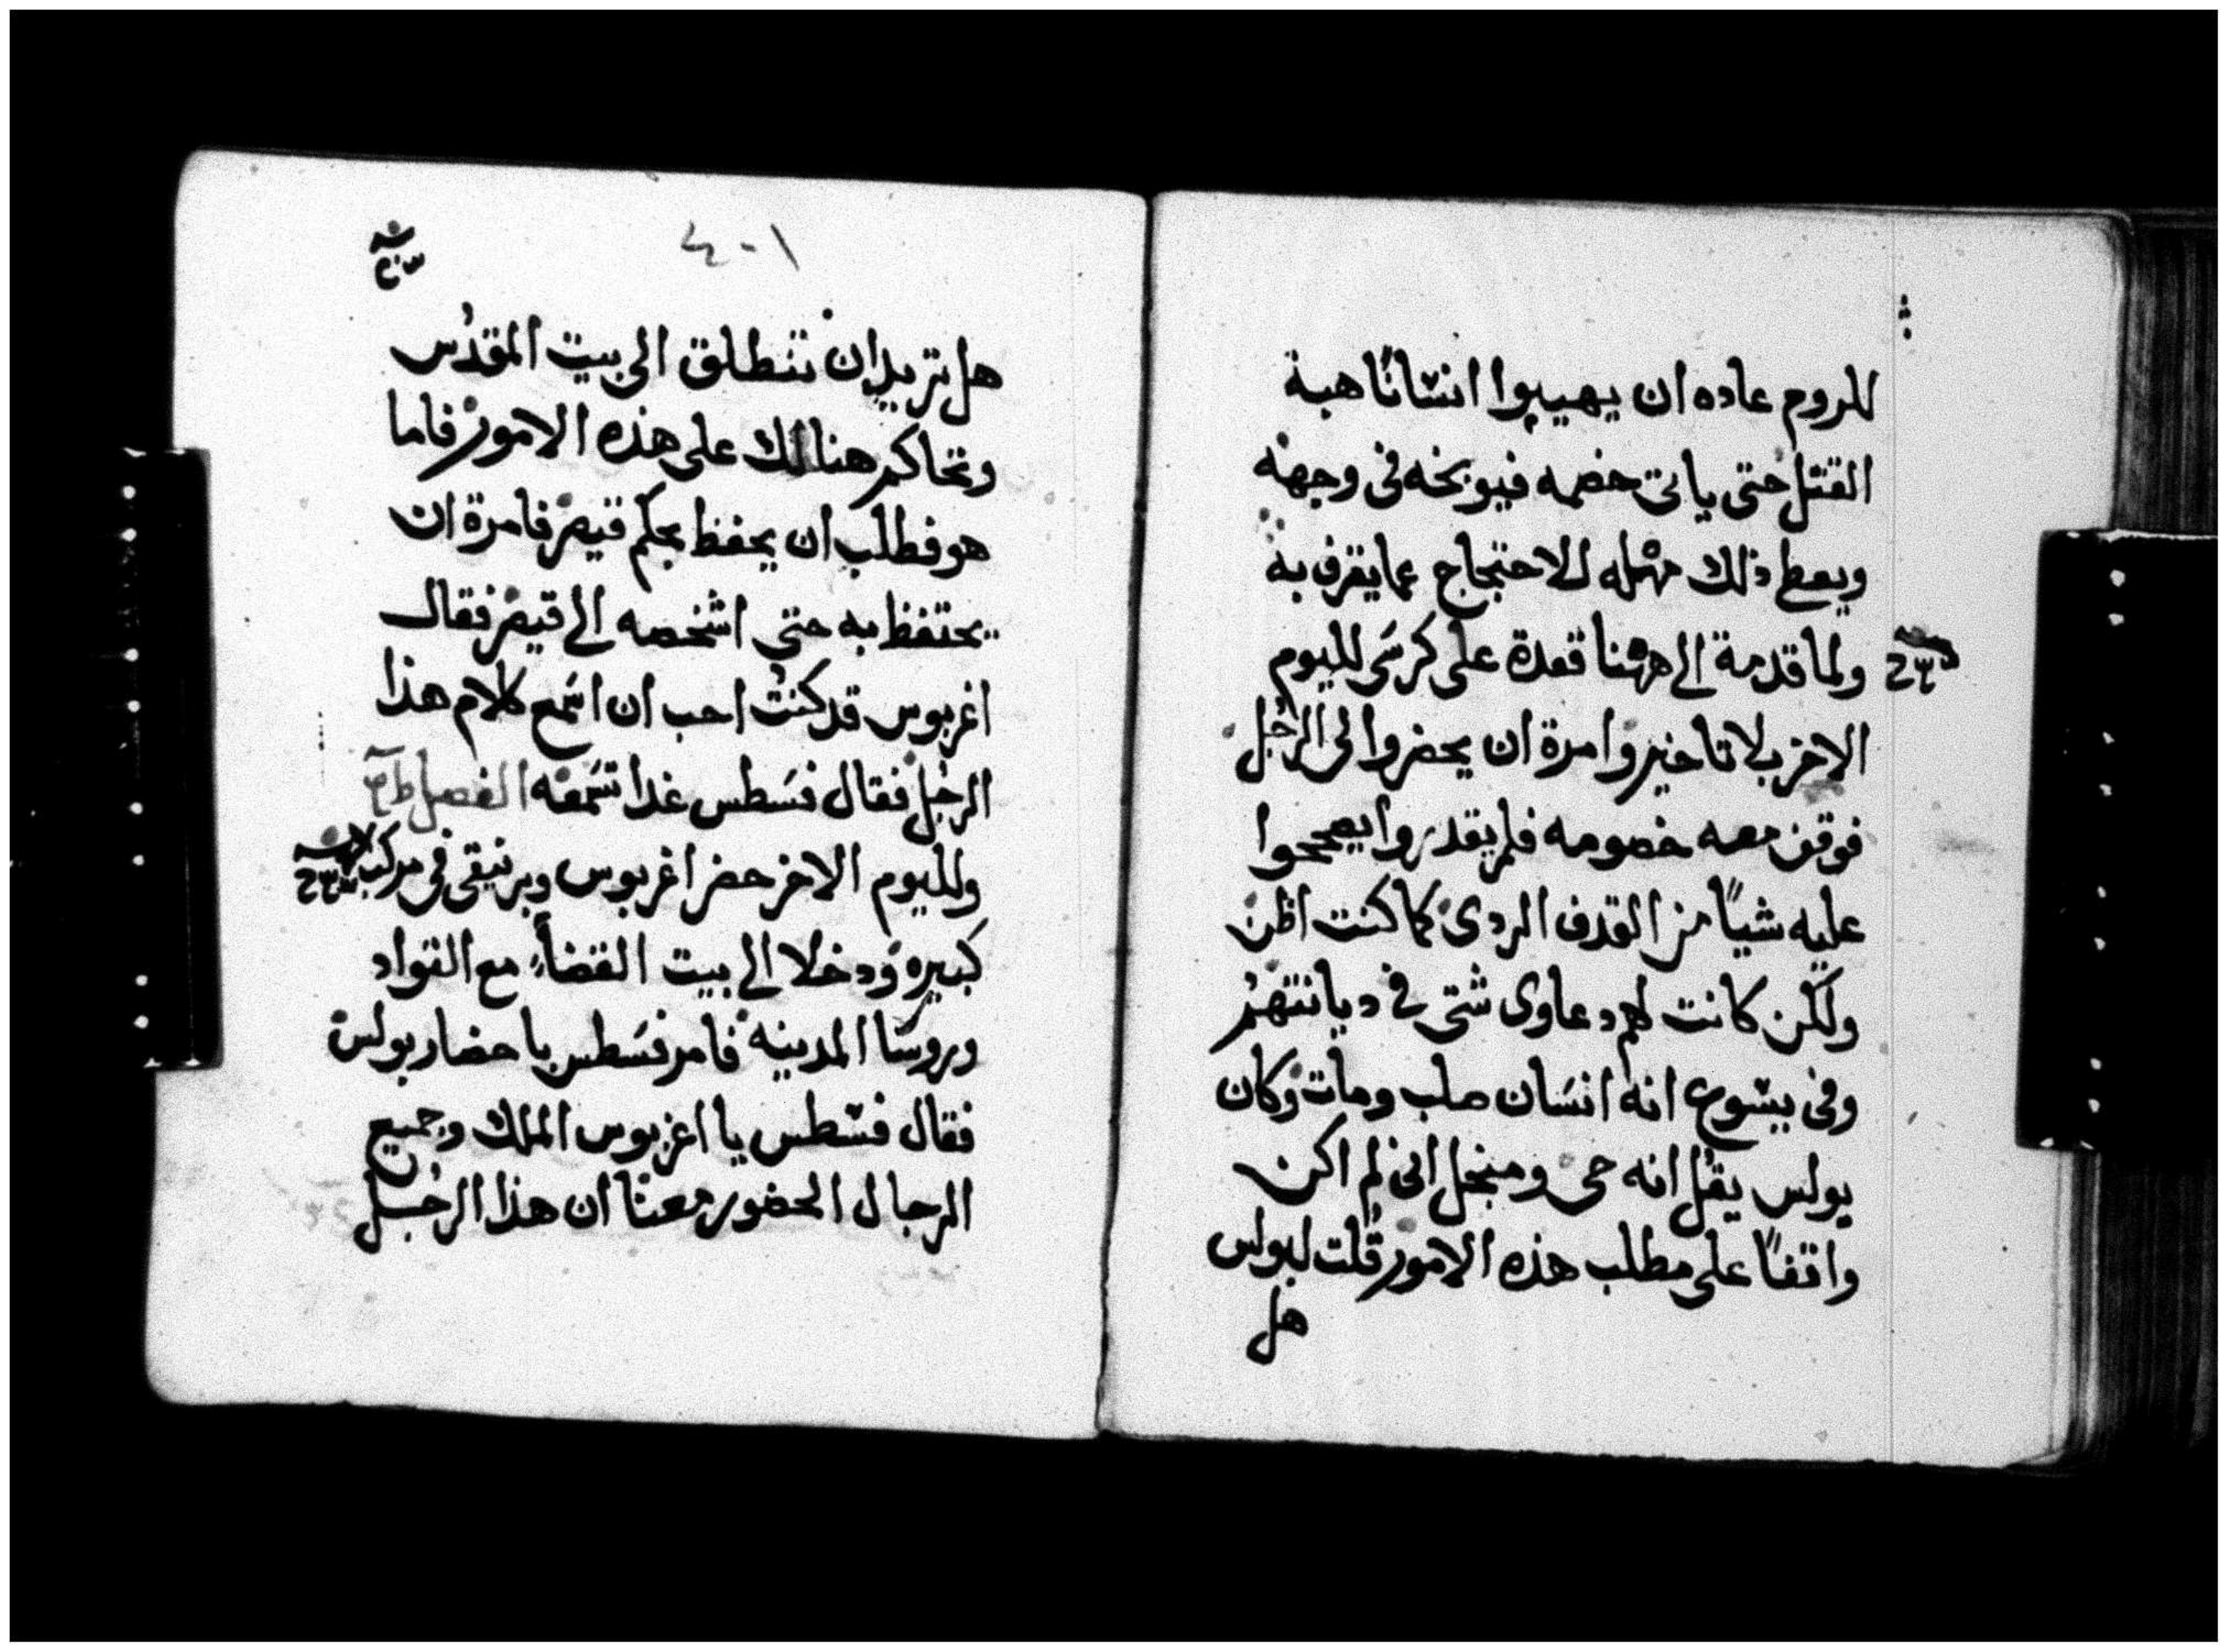 للروم عاده ان يهيبوا انسانًا هبة
القتل حتى ياتى خصمه فيوبخه فى وجهه
ويعط ذلك مهله للاحتجاج عما يقرف به
ولما قدمة الى ههنا قعدة على كرسى لليوم
الاخر بلا تاخير وامرة ان يحضروا لى الرجل
فوقف معه خصومه فلم يقدروا يصححوا
عليه شيًا من القدف الردى كما كنت اظن
ولكن كانت لهم دعاوى شتى فى ديانتهم
وفى يسوع انه انسان صلب ومات وكان
بولس يقل انه حى ومنجل انى لم اكن
واقفًا على مطلب هذه الامور قلت لبولس
هل
٤٠١
هل تريد ان تنطلق الى بيت المقدس
وتحاكم هنالك على هذه الامور فاما
هو فطلب ان يحفظ بحكم قيصر فامرة ان
يحتفظ به حتى اشخصه الى قيصر فقال
اغربوس قد كنت احب ان اسمع كلام هذا
الرجل فقال فسطس غدا تسمعه الفصل
ولليوم الاخر حضر اغربوس وبرنيقى فى مركب
كبيره ودخلا الى بيت القضاء مع القواد
وروسا المدينه فامر فسطس باحضار بولس
فقال فسطس يا اغربوس الملك وجميع
الرجال الحضور معنا ان هذا الرجل